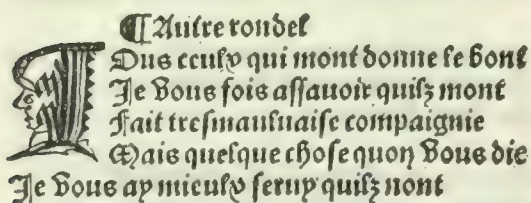 ¶ Autre rondel
TOus ceulx qui mont donne le bont
Je vous fois assauoir quilz mont
Fait tresmauluaise compaignie
Mais quelque chose quon vous die
Je vous ay mieulx seruy quilz nont